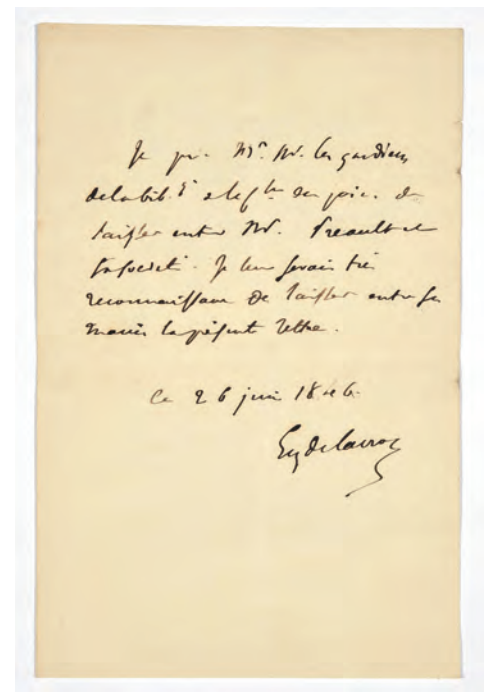 Je prie Mrs. les gardiens
de la bib. de la ch. des pairs de
laisser entrer Mr. Preault et
sa société. Je leur serais très
reconnaissant de laisser entre ses
mains la présente lettre.
Ce 26 juin 1846.
Eug Delacroix